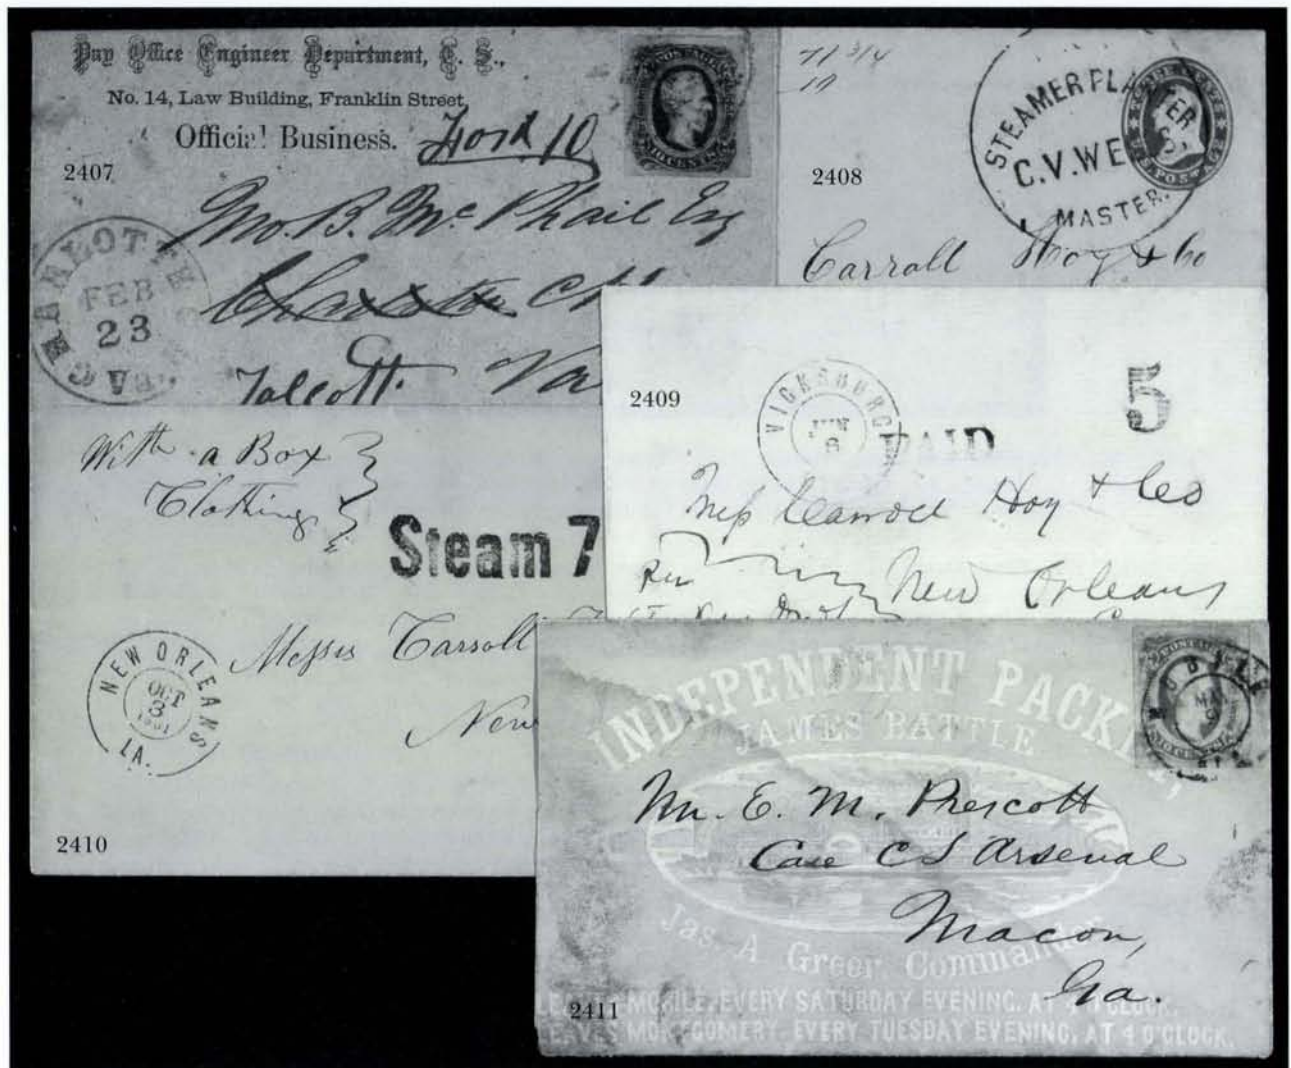 Pay Office Engineer Department, C. S.,
No. 14, Law Building, Franklin Street,
Official Business.
Ford 10
2407
Jno. B. Mc Phail Esq
Charlotte C H
Talcott. Va
CHARLOTTE
FEB
23
VA
71 3/4
10
STEAMER PLANTER
C. V. WE S,
MASTER.
U.S. POSTAGE
2408
Carroll Hoy & Co
2409
VICKSBURG
JUN
6
PAID
5
Mess Carroll Hoy & Co
New Orleans
With a Box
Clothing
Steam 7
NEW ORLEANS
OCT
3
1861
LA.
Messrs Carroll
New
2410
INDEPENDENT PACKET,
JAMES BATTLE
MOBILE
MAY
9
Mr. E. M. Prescott
Care C S Arsenal
Macon,
Ga.
Jas. A Greer Commander
2411
LEAVES MOBILE, EVERY SATURDAY EVENING, AT 4 O'CLOCK.
LEAVES MONTGOMERY, EVERY TUESDAY EVENING, AT 4 O'CLOCK.